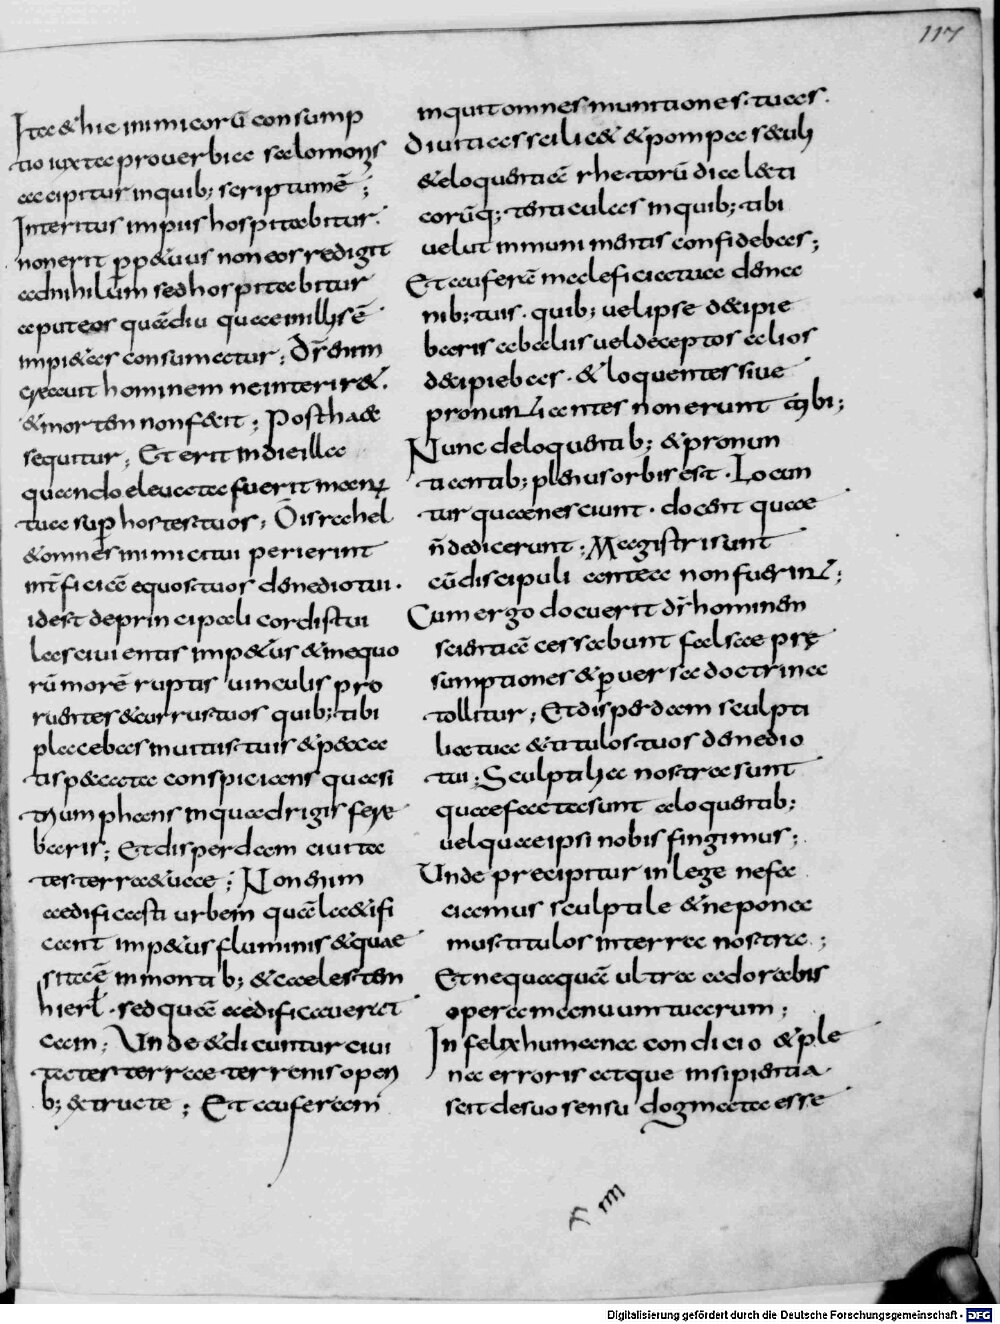 117
Ita & hic inimicorũ consump
tio iuxta proverbia salomonis
accipitur inquib; scriptumẽ;
Interitus impiis hospitabitur.
non erit perp&uus non eos redigit
adnihilum sed hospitabitur
apud eos quãdiu quae in illis ẽ
impi&as consumatur; Dr̃ enim
creauit hominem ne interir&.
& mortem non fecit; Post haec
sequitur; Et erit indie illa
quando eleuata fuerit manus
tua sup hostes tuos; Oĩs rachel
& omnes inimici tui perierint
int̃ficiã equos tuos demedio tui.
id est deprincipali cordis tui
lasciuientis imp&us & inequo
rũ morẽ ruptis uinculis pro
ruentes & currus tuos quib; tibi
placebas multis tuis & pecca
tis peccata conspiciens quasi
triumphans in quadrigis fere
baris; Et disperdam ciuita
tes terrae tuae; Non enim
aedificasti urbem quã laetifi
cant imp&us fluminis & quae
sita ẽ in montib; & caelestem
hierl̃. sed quã aedificauerat
cain; Unde & dicuntur ciui
tates terrae terrenis operi
b; structe; Et auferam
inquit omnes munitiones tuas.
Diuitias scilic& & pompa saeculi
& eloquentiã rhetorũ dialecti
corũq; tenticulas inquib; tibi
uelut in munimentis confidebas;
Et auferã maleficia tua dema
nib; tuis. quib; uel ipse decipie
baris abaliis uel deceptos alios
decipiebas. & loquentes siue
pronuntiantes non erunt tibi;
Nunc deloquentib; & pronun
tiantib; plenus orbis est. Locun
tur quae nesciunt. docent quae
ñ dedicerunt; Magistri sunt
cũ discipuli antea non fuerint;
Cum ergo docuerit dñs hominem
scientiã cessabunt falsae prę
sumptiones & peruersa doctrina
tollitur; Et disperdam sculpti
lia tua & titulos tuos demedio
tui; Sculptilia nostra sunt
quae facta sunt aloquentib;
uel quae ipsi nobis fingimus;
Unde precipitur in lege ne fa
ciamus sculptile & ne pona
mus titulos in terra nostra;
Et nequaquã ultra adorabis
opera manuum tuarum;
Infelix humana condicio & ple
na erroris atque insipientia
seit desuo sensu dogmata esse
Digitalisierung gefördert durch die Deutsche Forschungsgemeinschaft - DFG